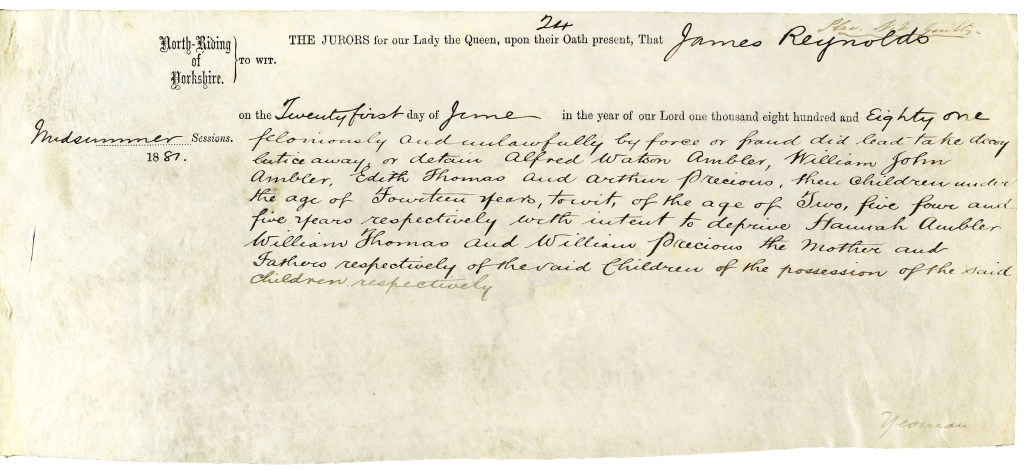 24
North-Riding
of
Yorkshire.
TO WIT.
THE JURORS for our Lady the Queen, upon their Oath present, That James Reynolds
on the Twenty first day of June in the year of our Lord one thousand eight hundred and Eighty one
Midsummer Sessions.
1881.
feloniously and unlawfully by force or fraud did lead take decoy
entice away, or detain Alfred Watson Ambler, William John
Ambler, Edith Thomas and Arthur Precious, then Children under
the age of Fourteen Years, to wit, of the age of Two, five four and
five Years respectively with intent to deprive Hannah Ambler
William Thomas and William Precious the Mother and
Fathers respectively of the said Children of the possession of the said
Children respectively
Yeoman